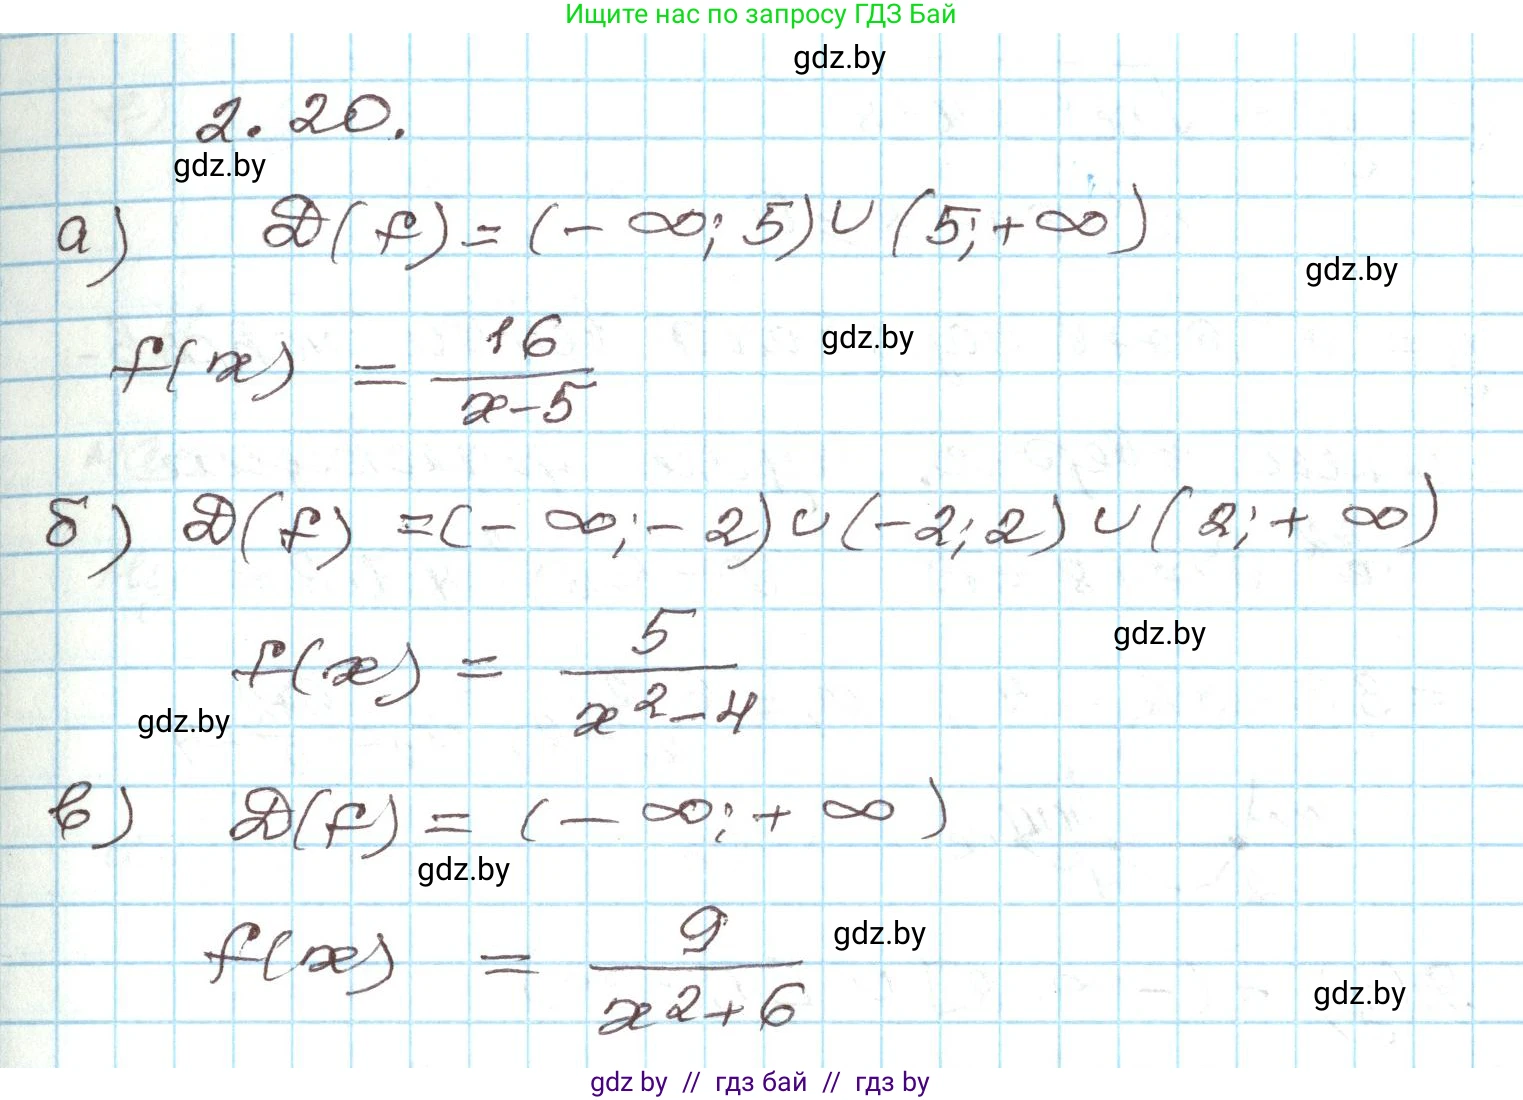 Ищите нас по запросу ГДЗ Бай
gdz.by
2.20.
gdz.by
а) D(f) = (-∞; 5) ∪ (5; +∞)
gdz.by
f(x) = 16/(x-5)
gdz.by
б) D(f) = (-∞; -2) ∪ (-2; 2) ∪ (2; +∞)
f(x) = 5/(x²-4)
gdz.by
gdz.by
в) D(f) = (-∞; +∞)
gdz.by
f(x) = 9/(x²+6)
gdz.by
gdz.by
gdz by // гдз бай // гдз by